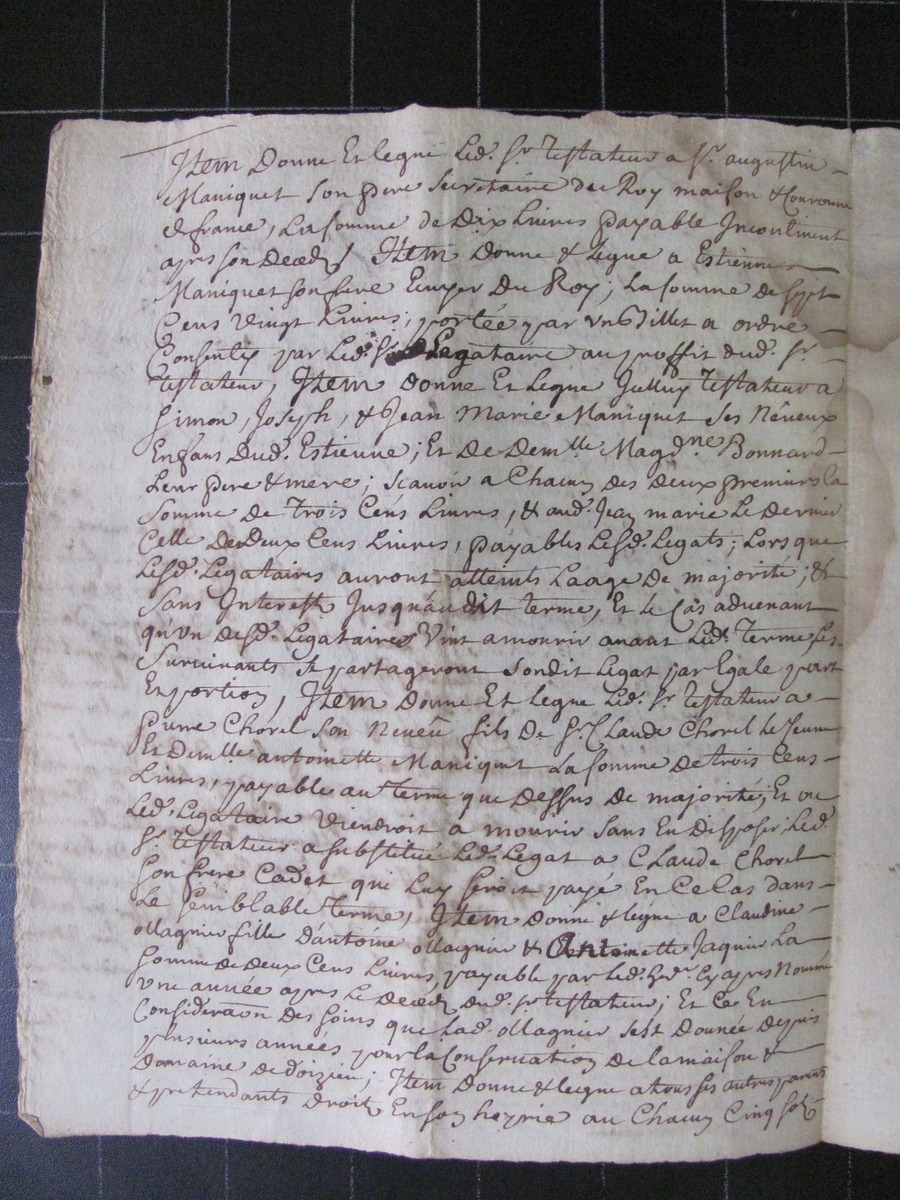 Item donne et legue led. Sr testateur a Sr. augustin
Maniquet son pere secretaire du Roy maison & Couronne
de france, la somme de Dix Livres payable Incontinent
apres son deced / Item donne & legue a Estienne
Maniquet son frere Ecuyer du Roy; la somme de sept
Cens vingt Livres, portée par un Billet a ordre
Consenty par led. Sr Legataire au proffit dud. Sr
testateur, Item donne et legue Icelluy testateur a
Simon, Joseph, & Jean Marie Maniquet ses Néveux
Enfans dud. Estienne; Et de demlle Magdne Bonnard
Leur pere & mere; scavoir a Chacun des deux premiers la
Somme de trois Cens Livres, & aud. Jean marie le dernier
Celle de deux Cens Livres, payables lesd. Legats; Lorsque
lesd. Legataires auront atteints Laage de majorité; &
Sans Interesth Jusqu'audit terme, Et le Cas advenant
qu'un desd. Legataires vint a mourir avant led. terme les
Survivants se partageront sondit legat par Egale part
Et portion, Item donne Et legue led. Sr testateur a
pierre Chorel son Neveu fils de Sr. Claude Chorel le Jeune
Et demlle antoinette Maniquet la somme de trois Cens
Livres, payable au terme que dessus de majorité; Et ou
Led. Legataire viendroit a mourir sans En disposer led.
Sr. testateur a substitué led. Legat a Claude Chorel
Son frere Cadet qui luy seroit payé En ce Cas dans
Le semblable terme, Item donne & legue a Claudine
ollagnier fille d'antoine ollagnier & Antoinette Jaquier la
Somme de deux Cens Livres, payable par led. her. Cy apres Nommé
une année apres le deced dud. Sr testateur; Et Ce En
Consideraon des soins que lad. ollagnier sest donnée depuis
plusieurs années pour la Conservation de la maison &
domaine de doizieu; Item donne & legue a tous ses autres parents
& pretendants droit En son hoyrie au Chacun Cinq sols